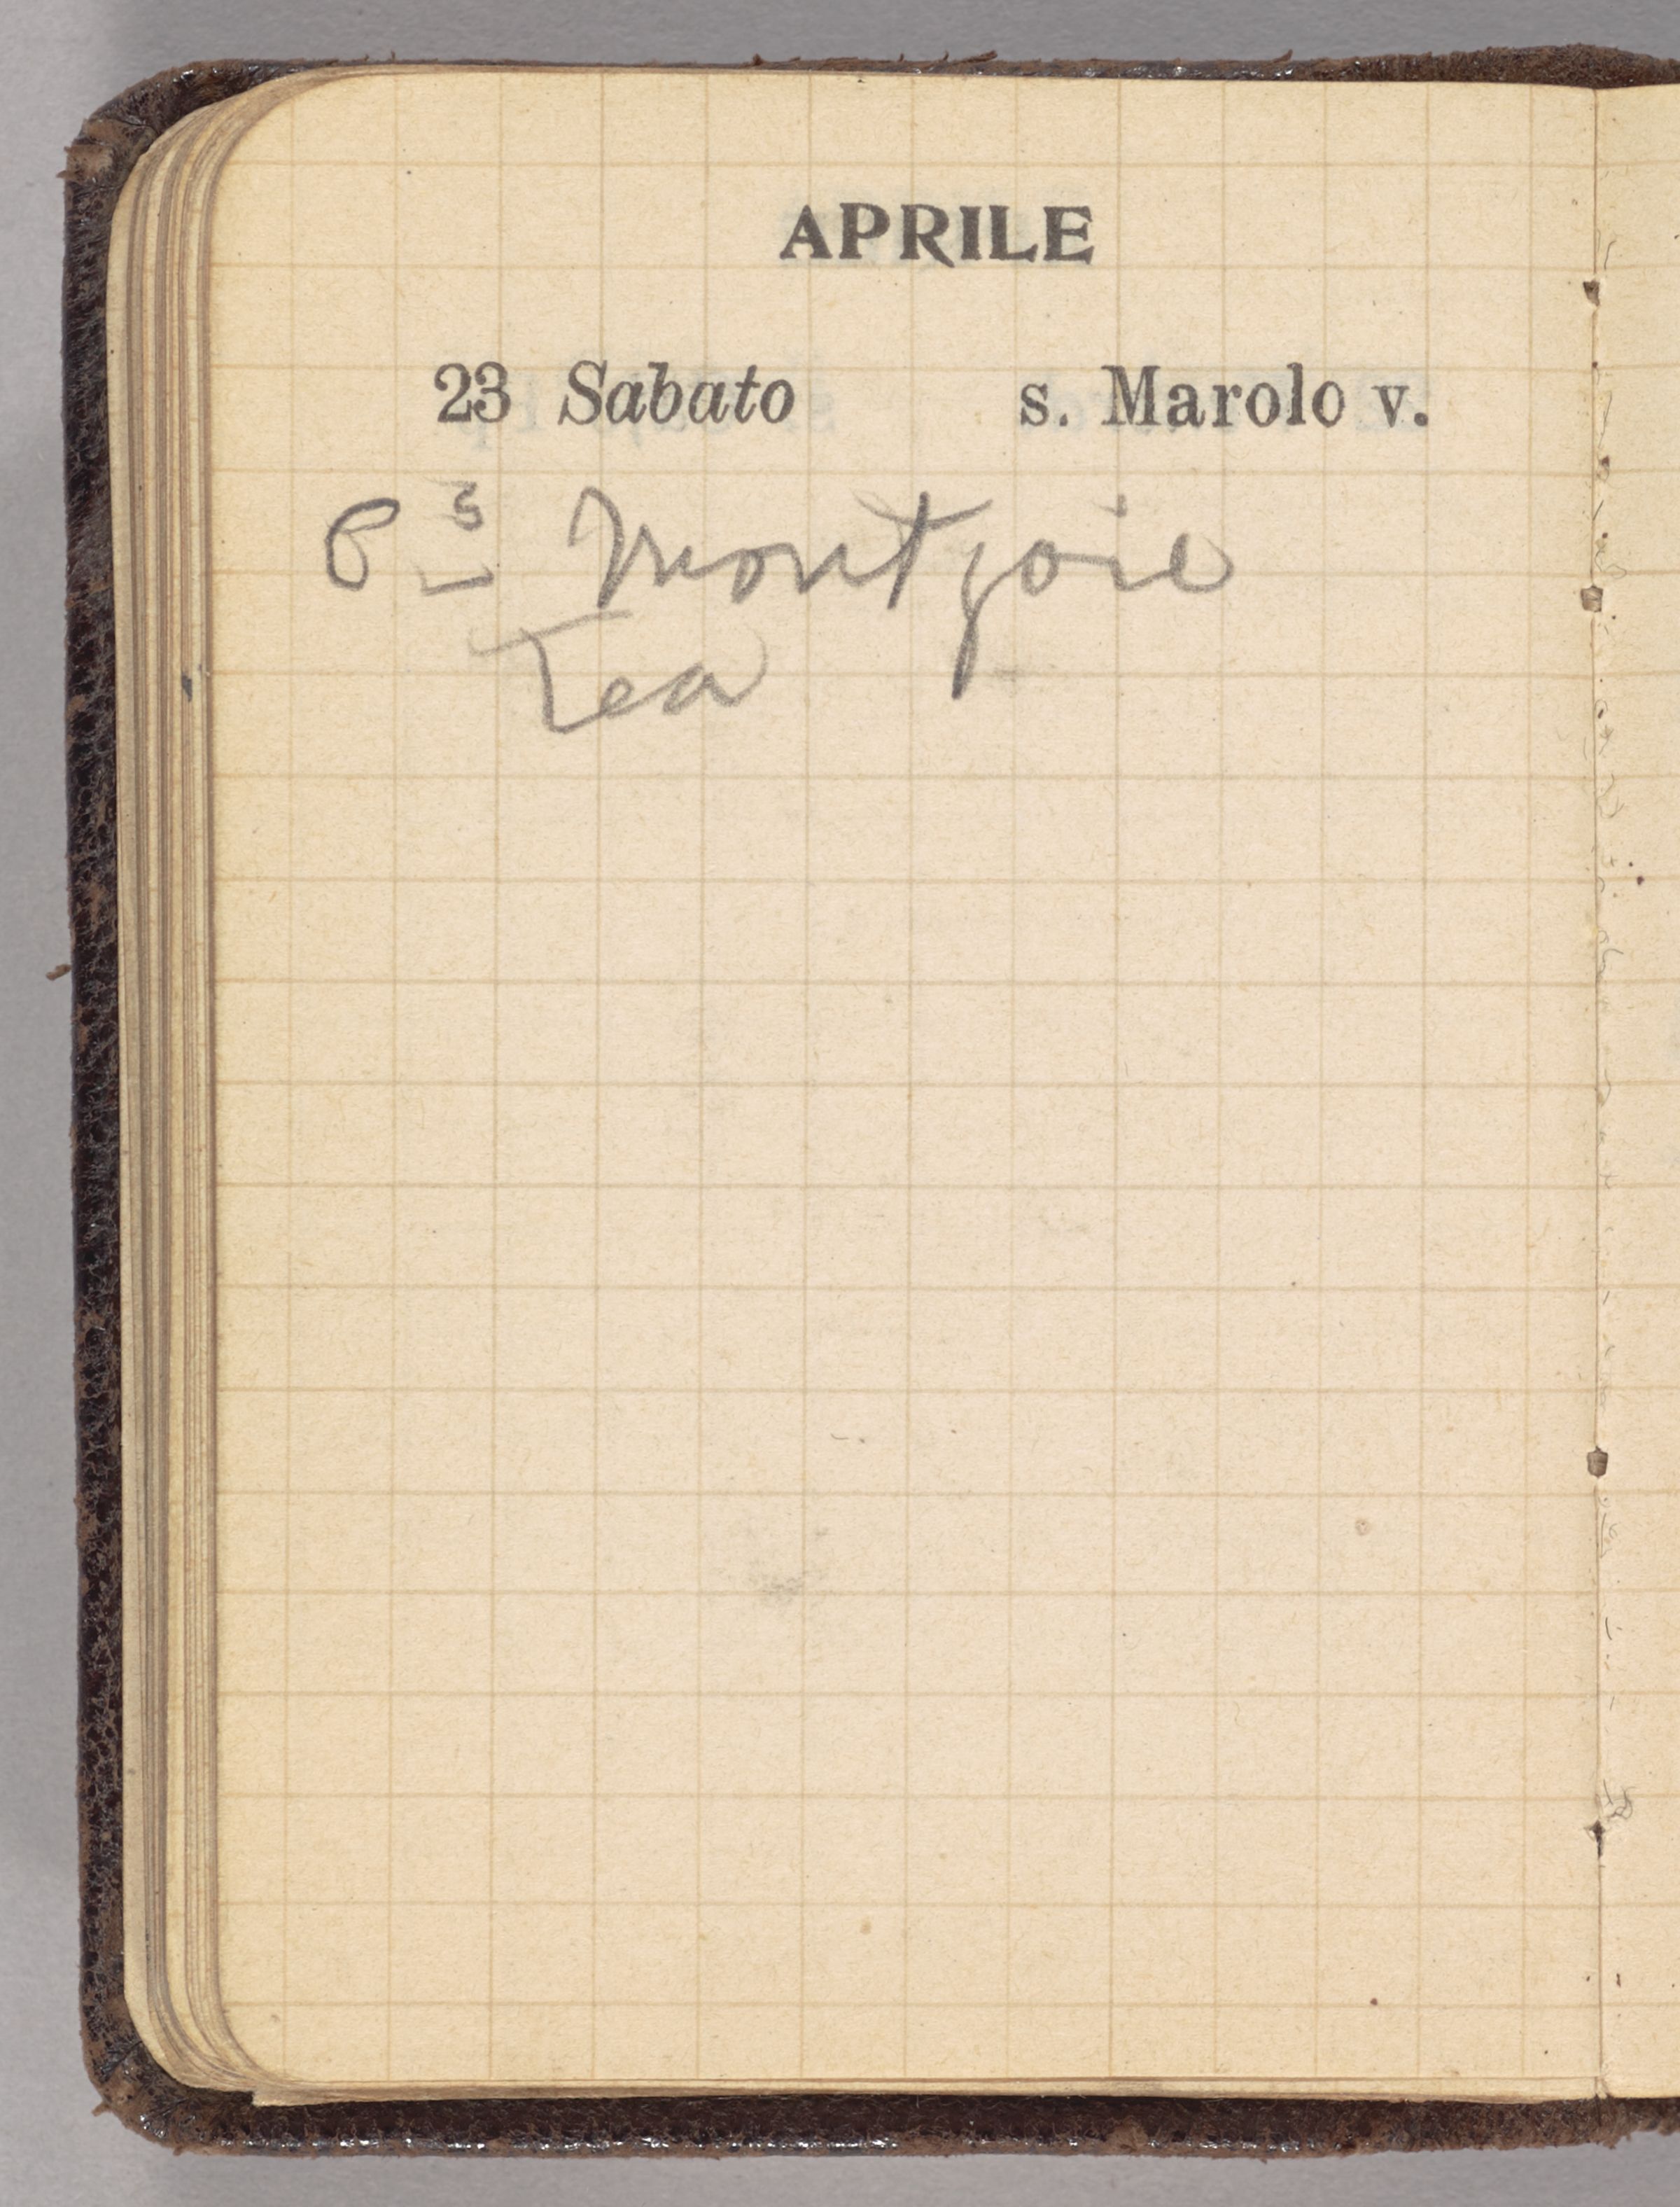 APRILE
23 Sabato s. Marolo v.
Pss Montjoie
Tea